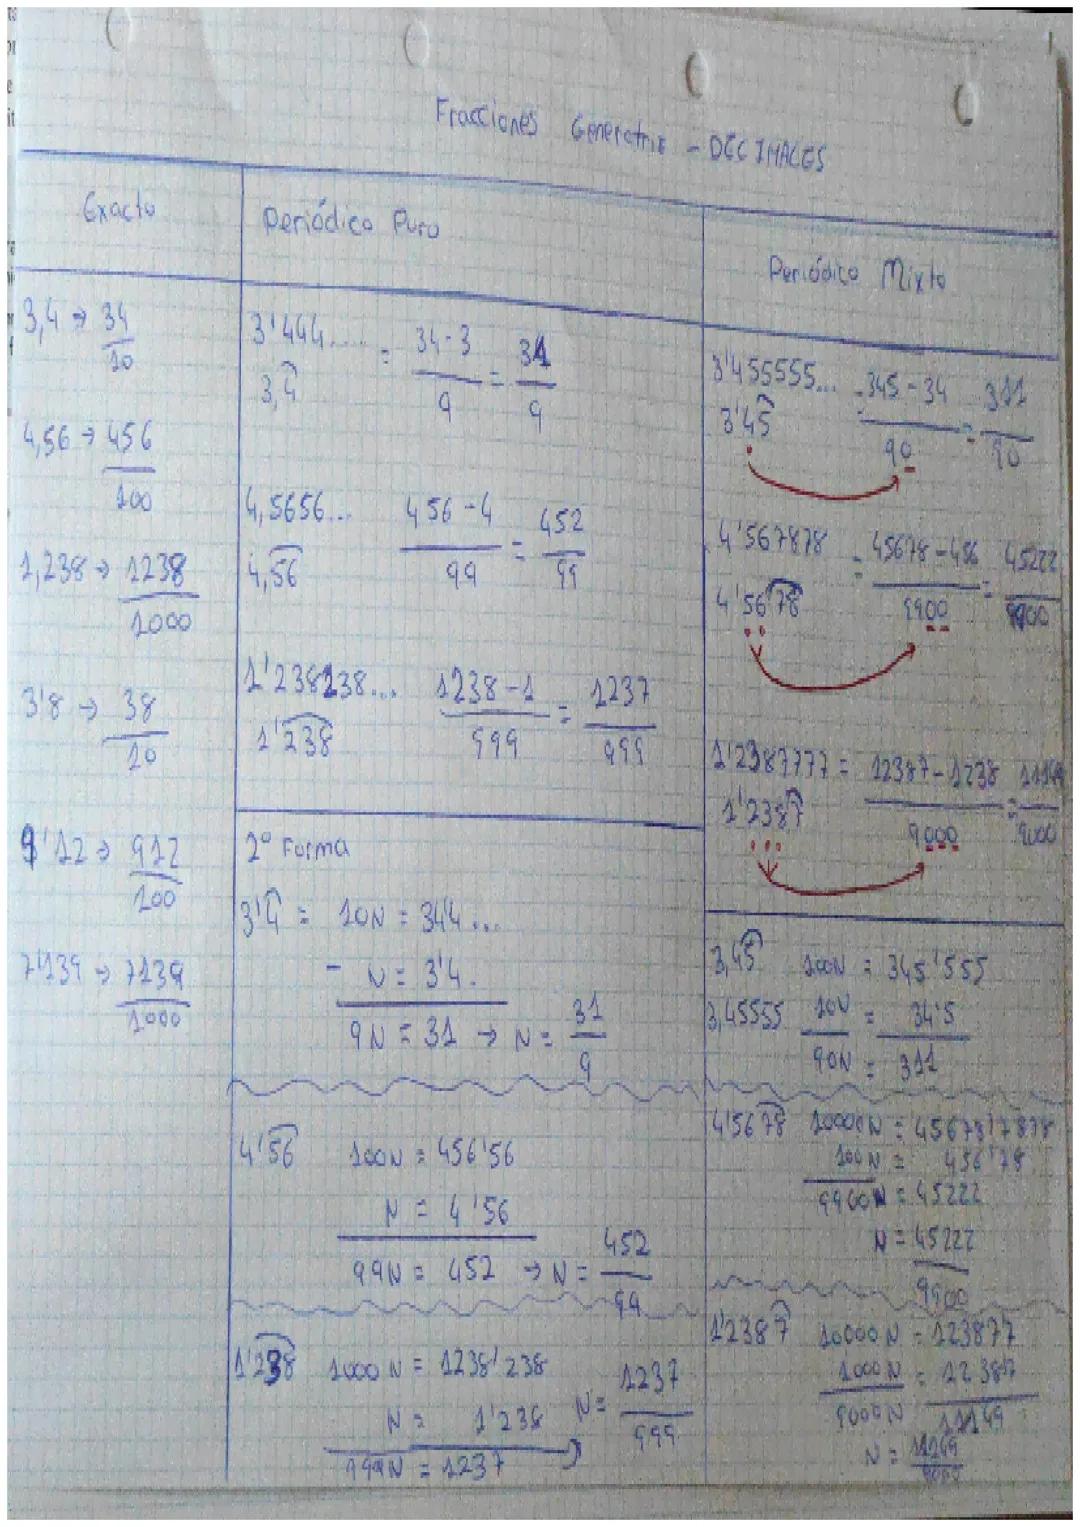 Fracciones Generatriz - DECIMALES
Exacto
3,4 → 34/10
4,56 → 456/100
1,238 → 1238/1000
3'8 → 38/10
9'12 → 912/100
7'139 → 7139/1000
Periódico Puro
3'444.... = 34-3/9 = 31/9
3,4̂
4,5656... 456-4/99 = 452/99
4,5͡6
1'238238... 1238-1/999 = 1237/999
1'2͡38
2º Forma
3'4̂ = 10N = 34'4...
- N = 3'4.
9N = 31 → N = 31/9
4'5͡6 100N = 456'56
N = 4'56
99N = 452 → N = 452/99
1'2͡38 1000N = 1238'238
N = 1'238 N = 1237/999
999N = 1237
Periódico Mixto
3'455555... = 345-34/90 = 311/90
3'45̂
4'567878 = 45678-456/9900 = 45222/9900
4'567͡8
1'2387777 = 12387-1238/9000 = 11149/9000
1'2387̂
3,45̂ 100N = 345'555
3,45555 10N = 34'5
90N = 311
4'567͡8 10000N = 45678'7878
100N = 456'78
9900N = 45222
N = 45222/9900
1'2387̂ 10000N = 12387'7
1000N = 1238'7
9000N 11149
N = 11149/9000